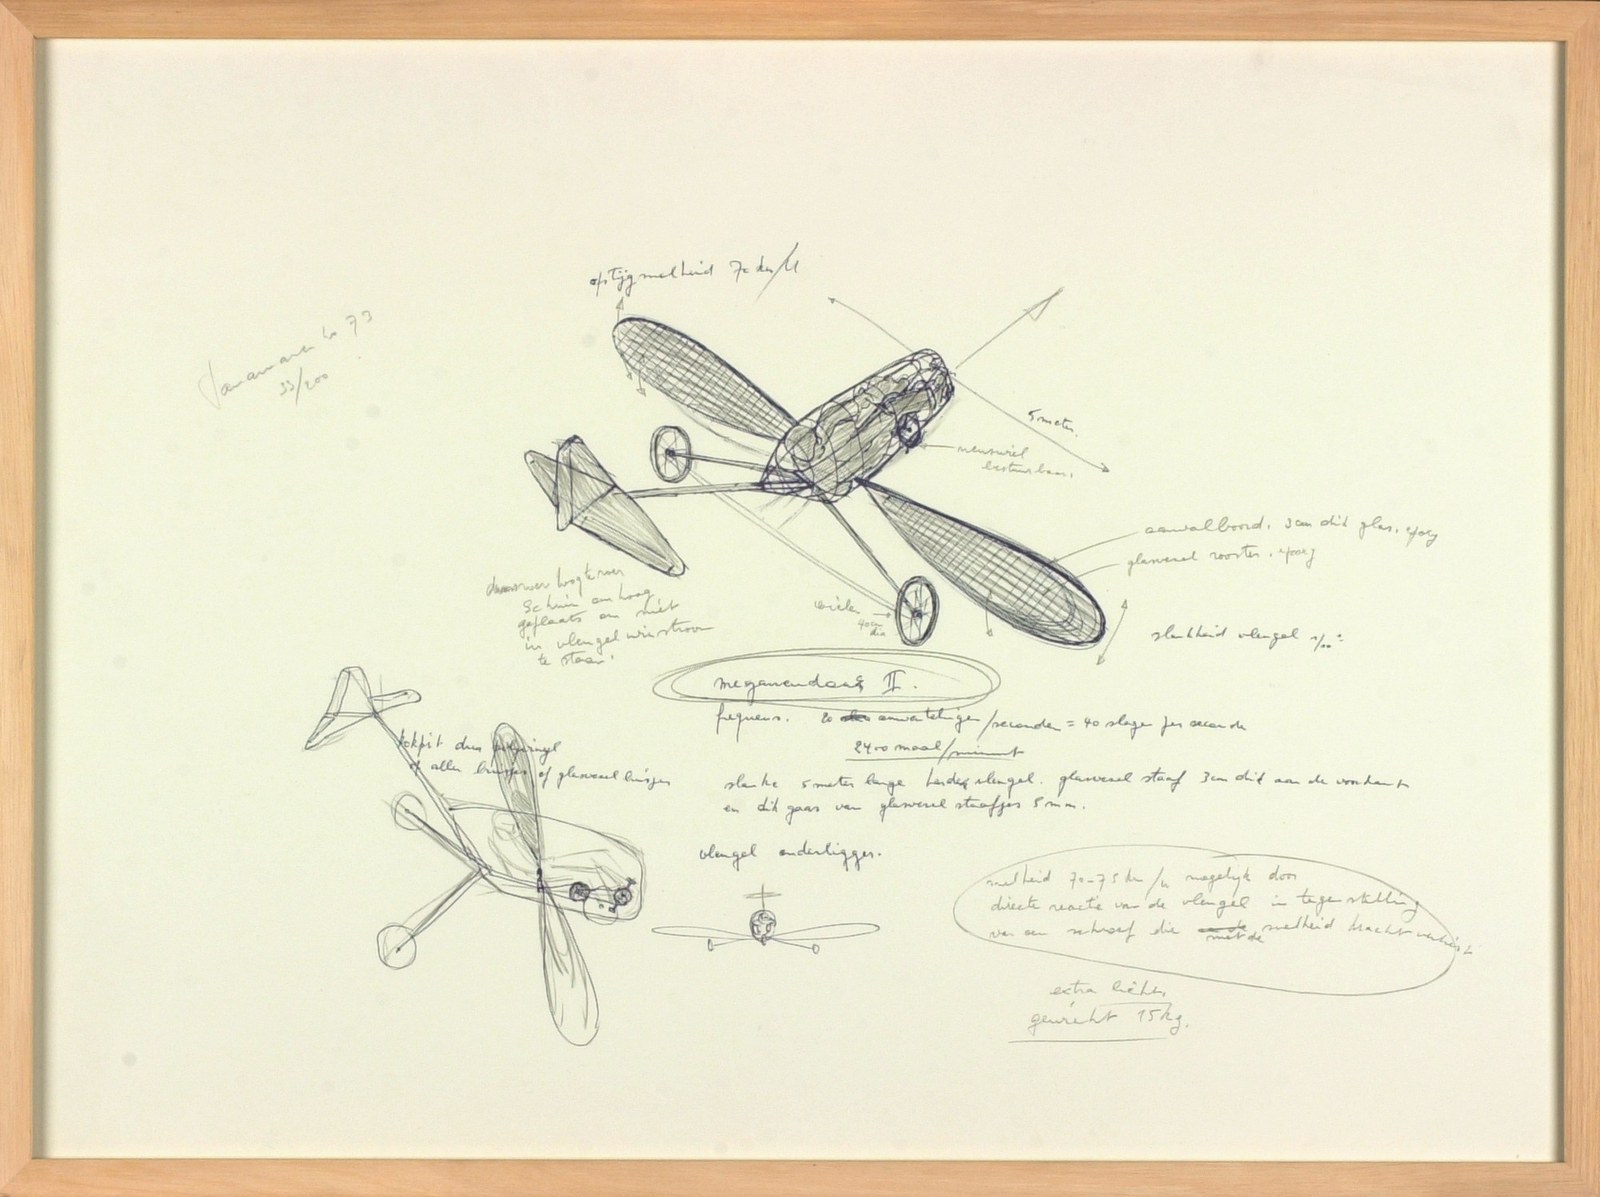 Panamarenko 73
33/200
opstijgsnelheid 70 km/U
5 meter.
neuswiel
bestuurbaar.
aanvalboord. 3cm dik glas. epoxy
glasvezel rooster. epoxy
hoogteroer
Schuin omhoog
geplaats om niet
in vleugel windstroom
te staan.
wielen
40cm
dia
slankheid vleugel 1/10
meganeudons II.
frequens. 20 omwentelingen/seconde = 40 slagen per seconde
2400 maal/minuut
kokpit dun
of glasvezel buisjes
slanke 5 meter lange vleugel. glasvezel staaf 3cm dik aan de voorkant
en dik gaas van glasvezel staafjes 5 mm.
vleugel onderligger.
snelheid 70-75 km/u mogelijk door
directe reactie van de vleugel in tegenstelling
van een schroef die met de snelheid kracht verliest
extra lichte
gewicht 15kg.